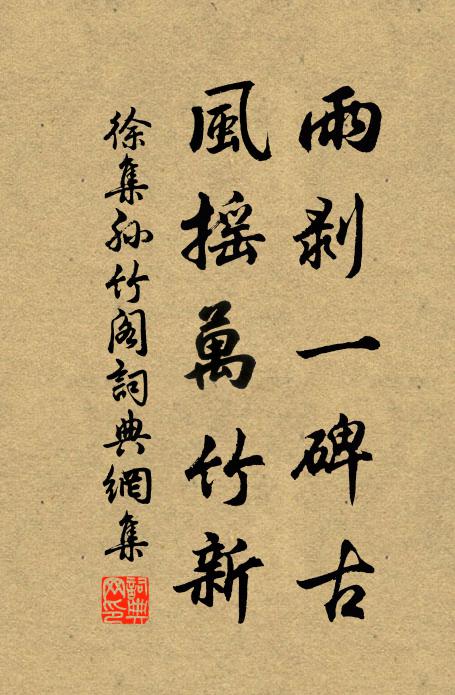 雨剥一碑古
風摇萬竹新
徐集孙竹阁詞典網集
詞典
网印